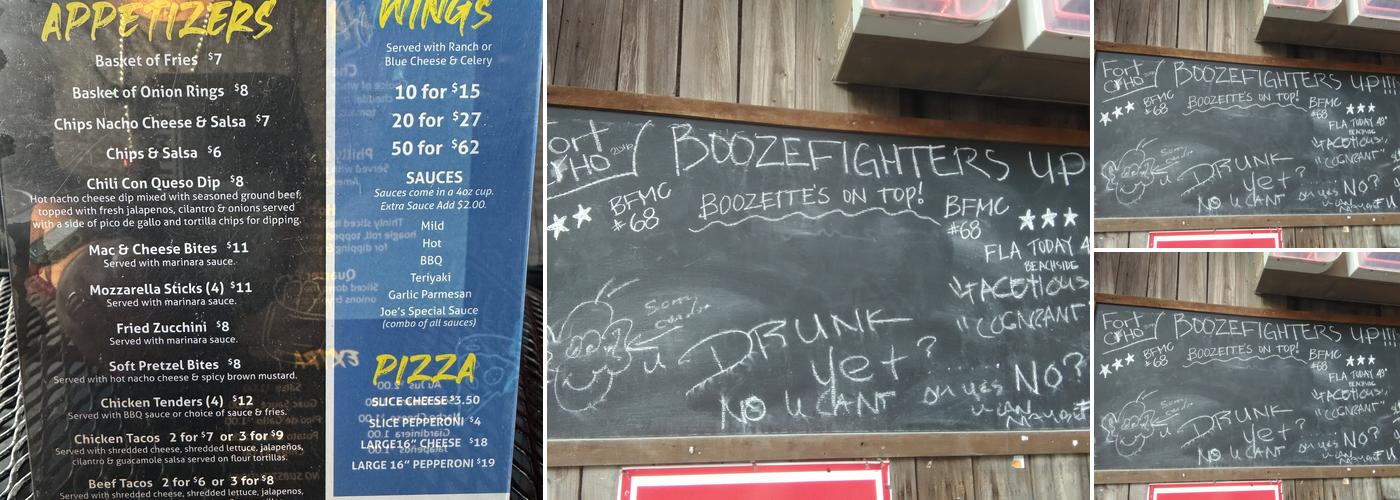 APPETIZERS
Basket of Fries $7
Basket of Onion Rings $8
Chips Nacho Cheese & Salsa $7
Chips & Salsa $6
Chili Con Queso Dip $8
Hot nacho cheese dip mixed with seasoned ground beef,
topped with fresh jalapenos, cilantro & onions served
with a side of pico de gallo and tortilla chips for dipping.
Mac & Cheese Bites $11
Served with marinara sauce.
Mozzarella Sticks (4) $11
Served with marinara sauce.
Fried Zucchini $8
Served with marinara sauce.
Soft Pretzel Bites $8
Served with hot nacho cheese & spicy brown mustard.
Chicken Tenders (4) $12
Served with BBQ sauce or choice of sauce & fries.
Chicken Tacos 2 for $7 or 3 for $9
Served with shredded cheese, shredded lettuce, jalapeños,
cilantro & guacamole salsa served on flour tortillas.
Beef Tacos 2 for $6 or 3 for $8
Served with shredded cheese, shredded lettuce, jalapenos,
WINGS
Served with Ranch or
Blue Cheese & Celery
10 for $15
20 for $27
50 for $62
SAUCES
Sauces come in a 4oz cup.
Extra Sauce Add $2.00.
Mild
Hot
BBQ
Teriyaki
Garlic Parmesan
Joe's Special Sauce
(combo of all sauces)
PIZZA
SLICE CHEESE $3.50
SLICE PEPPERONI $4
LARGE 16" CHEESE $18
LARGE 16" PEPPERONI $19
Fort
BOOZEFIGHTERS UP
BOOZEITE'S ON TOP!
BFMC
#68
BFMC
#68
FLA TODAY
BEACHSIDE
"COGNRANT"
DRUNK
yet?
NO U CANT
No?
Fort
BOOZEFIGHTERS UP!!!
BOOZEITE'S ON TOP!
BFMC
#68
BFMC
#68
FLA TODAY
BEACHSIDE
"COGNRANT"
DRUNK
yet?
NO U CANT
No?
Fort
BOOZEFIGHTERS UP!!!
BOOZEITE'S ON TOP!
BFMC
#68
BFMC
#68
FLA TODAY
BEACHSIDE
"COGNRANT"
DRUNK
yet?
NO U CANT
No?